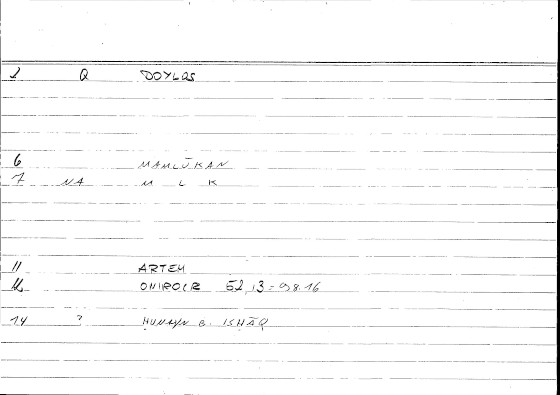 1 Q DOYLOS
6 MAMLŪKAN
7 NA M L K
11 ARTEM
12 ONIROCR 52,13 = 98.16
14 ? HUNAYN B. ISHĀQ